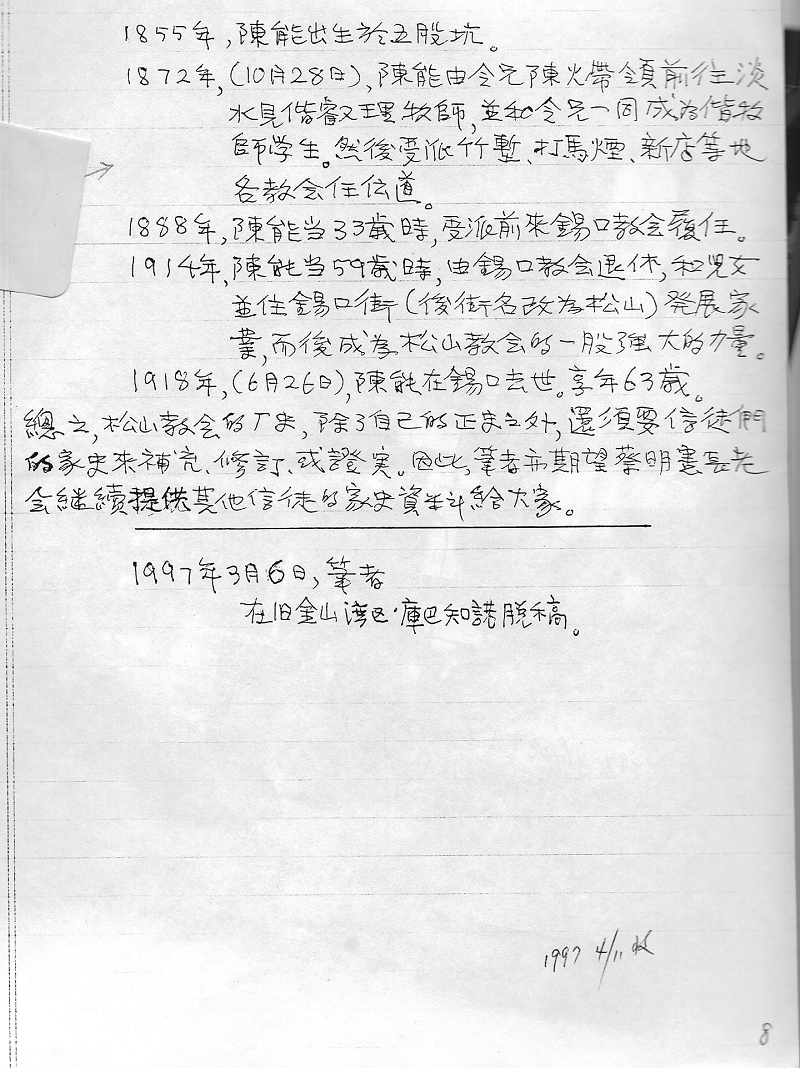 1855年,陳能出生於五股坑。
1872年,(10月28日),陳能由令兄陳火帶領前往淡
水見偕叡理牧師,並和令兄一同成為偕牧
師学生。然後受派竹塹、打馬煙、新店等地
各教会任伝道。
1888年,陳能当33歲時,受派前來錫口教会履任。
1914年,陳能当59歲時,由錫口教会退休,和兒女
並住錫口街(後街名改為松山)發展家
業,而後成為松山教会的一股强大的力量。
1918年,(6月26日),陳能在錫口去世。享年63歲。
總之,松山教会的厂史,除了自己的正史之外,還須要信徒們
的家史來補充、修訂、或證実。因此,筆者亦期望蔡明憲長老
会継續提供其他信徒的家史資料給大家。
1997年3月6日,筆者
在旧金山湾区·庫巴知諾脫稿。
1997 4/11 收
8